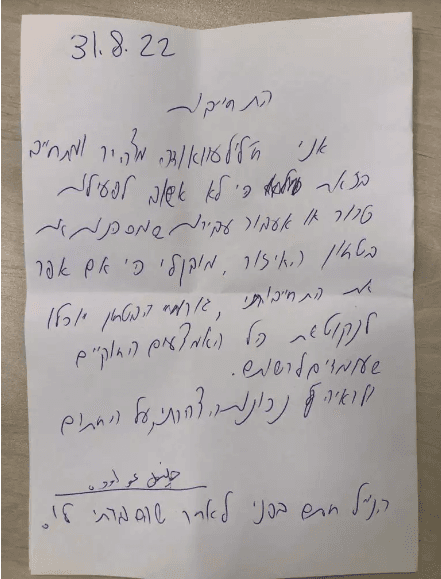 31.8.22
התחייבות
אני ח'ליל עוואודה מצהיר ומתחייב
בזאת כי לא אשוב לפעילות
טרור או אעבור עבירות שמסכנות את
בטחון האיזור, מובן לי כי אם אפר
את התחייבותי, גורמי הבטחון יוכלו
לנקוט את כל האמצעים החוקיים
שעומדים לרשותם.
ולראיה נכונות הצהרתי, על החתום
הנ"ל חתם בפני לאחר שהסברתי לו.